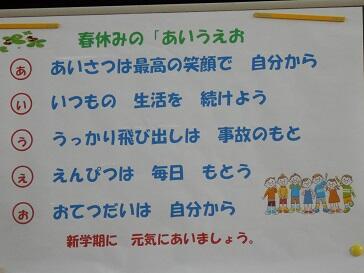 春休みの「あいうえお
あ あいさつは最高の笑顔で 自分から
い いつもの 生活を 続けよう
う うっかり飛び出しは 事故のもと
え えんぴつは 毎日 もとう
お おてつだいは 自分から
新学期に 元気にあいましょう。